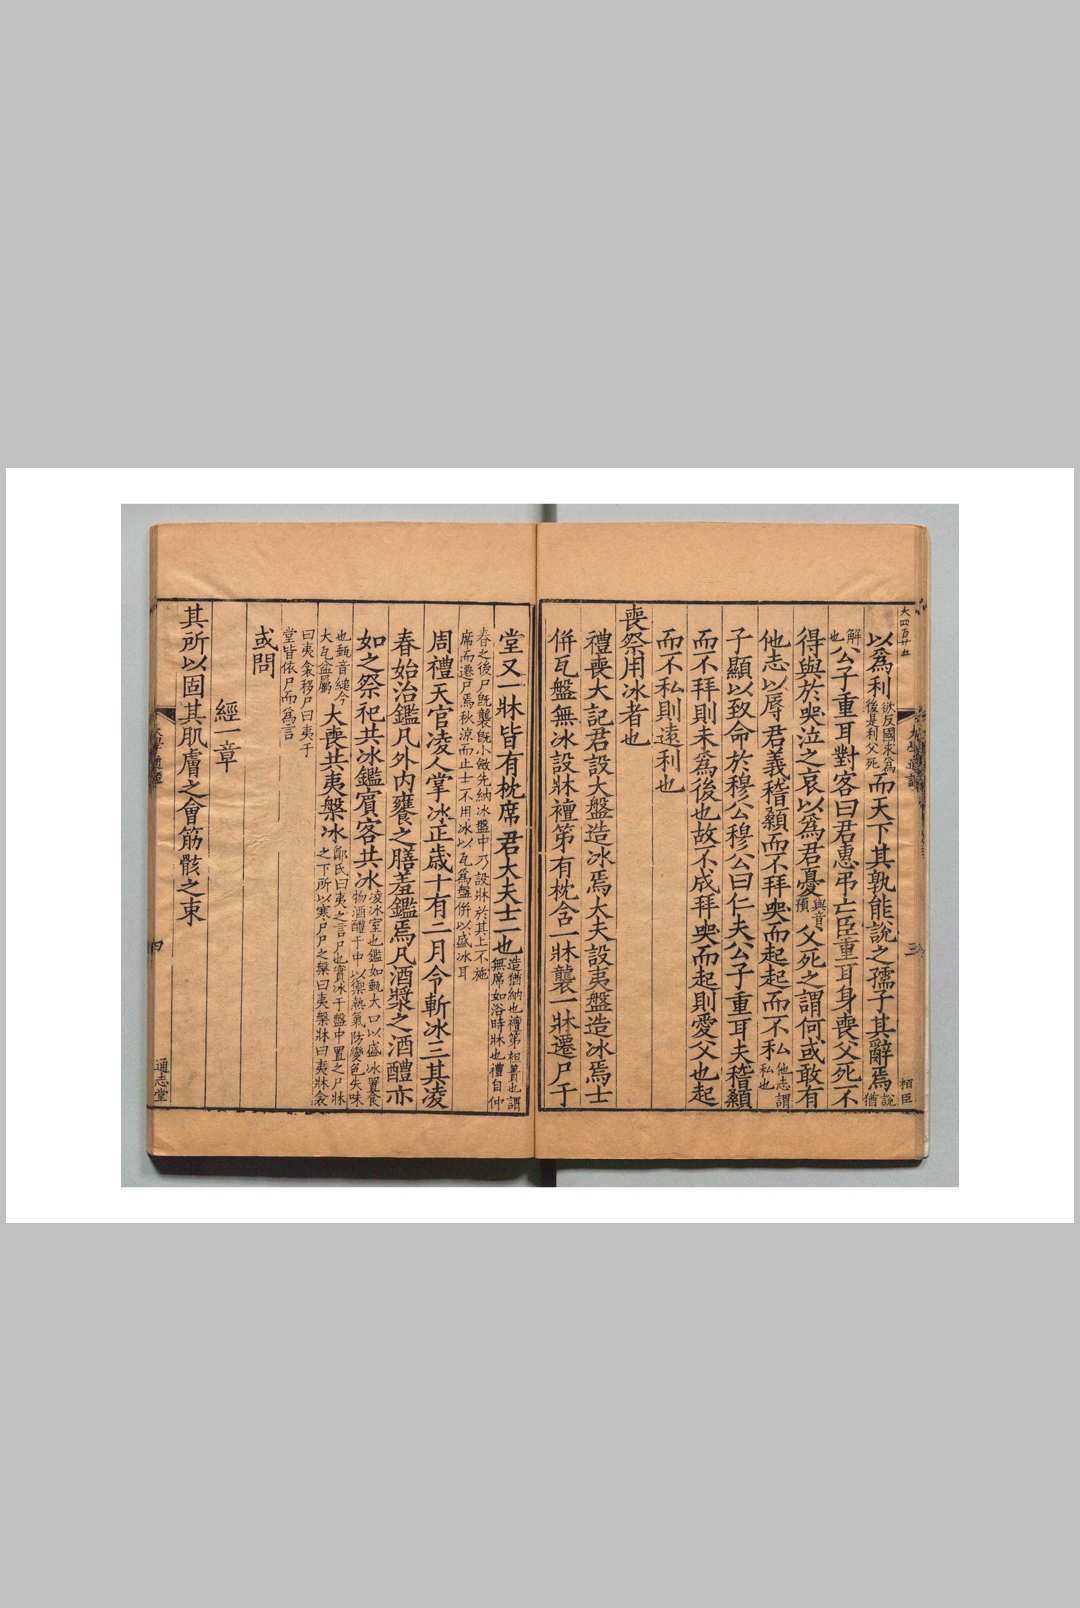 大四百廿五
以爲利欲反國求爲後是利父死而天下其孰能說之孺子其辭焉說猶
解也公子重耳對客曰君惠弔亡臣重耳身喪父死不
得與於哭泣之哀以爲君憂與音預父死之謂何或敢有
他志以辱君義稽顙而不拜哭而起起而不私他志謂私也
子顯以致命於穆公穆公曰仁夫公子重耳夫稽顙
而不拜則未爲後也故不成拜哭而起則愛父也起
而不私則遠利也
喪祭用冰者也
禮喪大記君設大盤造冰焉大夫設夷盤造冰焉士
併瓦盤無冰設牀襢笫有枕含一牀襲一牀遷尸于
堂又一牀皆有枕席君大夫士一也造猶納也襢笫袒簀也謂無席如浴時牀也禮自仲
春之後尸旣襲旣小斂先納冰盤中乃設牀於其上不施席而遷尸焉秋涼而止士不用冰以瓦爲盤併以盛冰耳
周禮天官凌人掌冰正歲十有二月令斬冰三其凌
春始治鑑凡外內饔之膳羞鑑焉凡酒漿之酒醴亦
如之祭祀共冰鑑賓客共冰凌冰室也鑑如甀大口以盛冰置食物酒醴于中以禦熱氣防變色失味
也甀音縋今大瓦盆屬大喪共夷槃冰鄭氏曰夷之言尸也實冰于盤中置之尸牀之下所以寒尸尸之槃曰夷槃牀曰夷牀衾
曰夷衾移尸曰夷于堂皆依尸而爲言
或問
經一章
其所以固其肌膚之會筋骸之束
大學通證
三
栢臣
四
通志堂